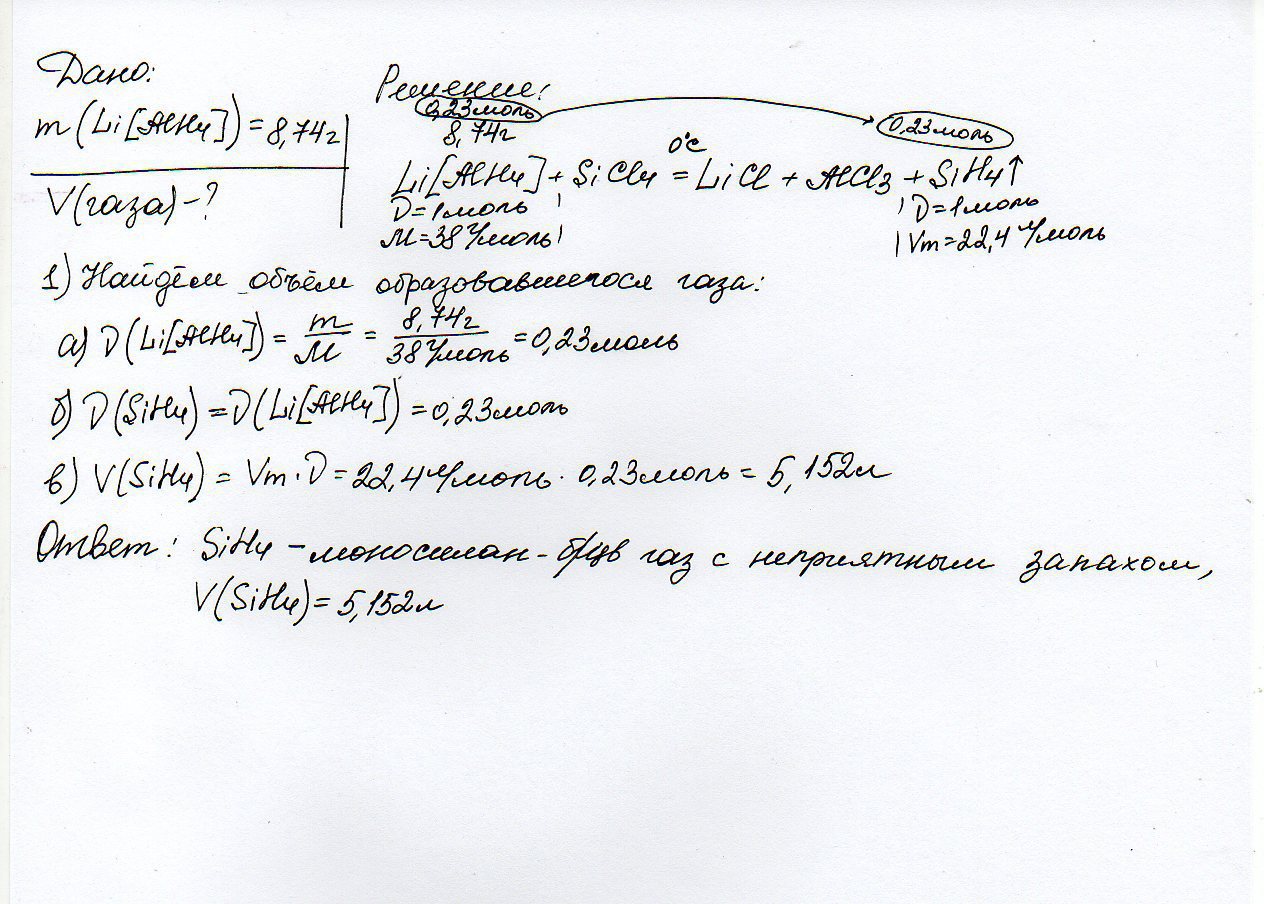 Дано:
m(Li[AlH4]) = 8,74г
V(газа) - ?
Решение:
0,23моль
0,23моль
8,74г
0°C
Li[AlH4] + SiCl4 = LiCl + AlCl3 + SiH4↑
ν=1моль
ν=1моль
M=38г/моль
Vm=22,4л/моль
1) Найдём объём образовавшегося газа:
а) ν(Li[AlH4]) = m/M = 8,74г/38г/моль = 0,23моль
б) ν(SiH4) = ν(Li[AlH4]) = 0,23моль
в) V(SiH4) = Vm·ν = 22,4л/моль · 0,23моль = 5,152л
Ответ: SiH4 - моносилан - б/цв газ с неприятным запахом,
V(SiH4) = 5,152л